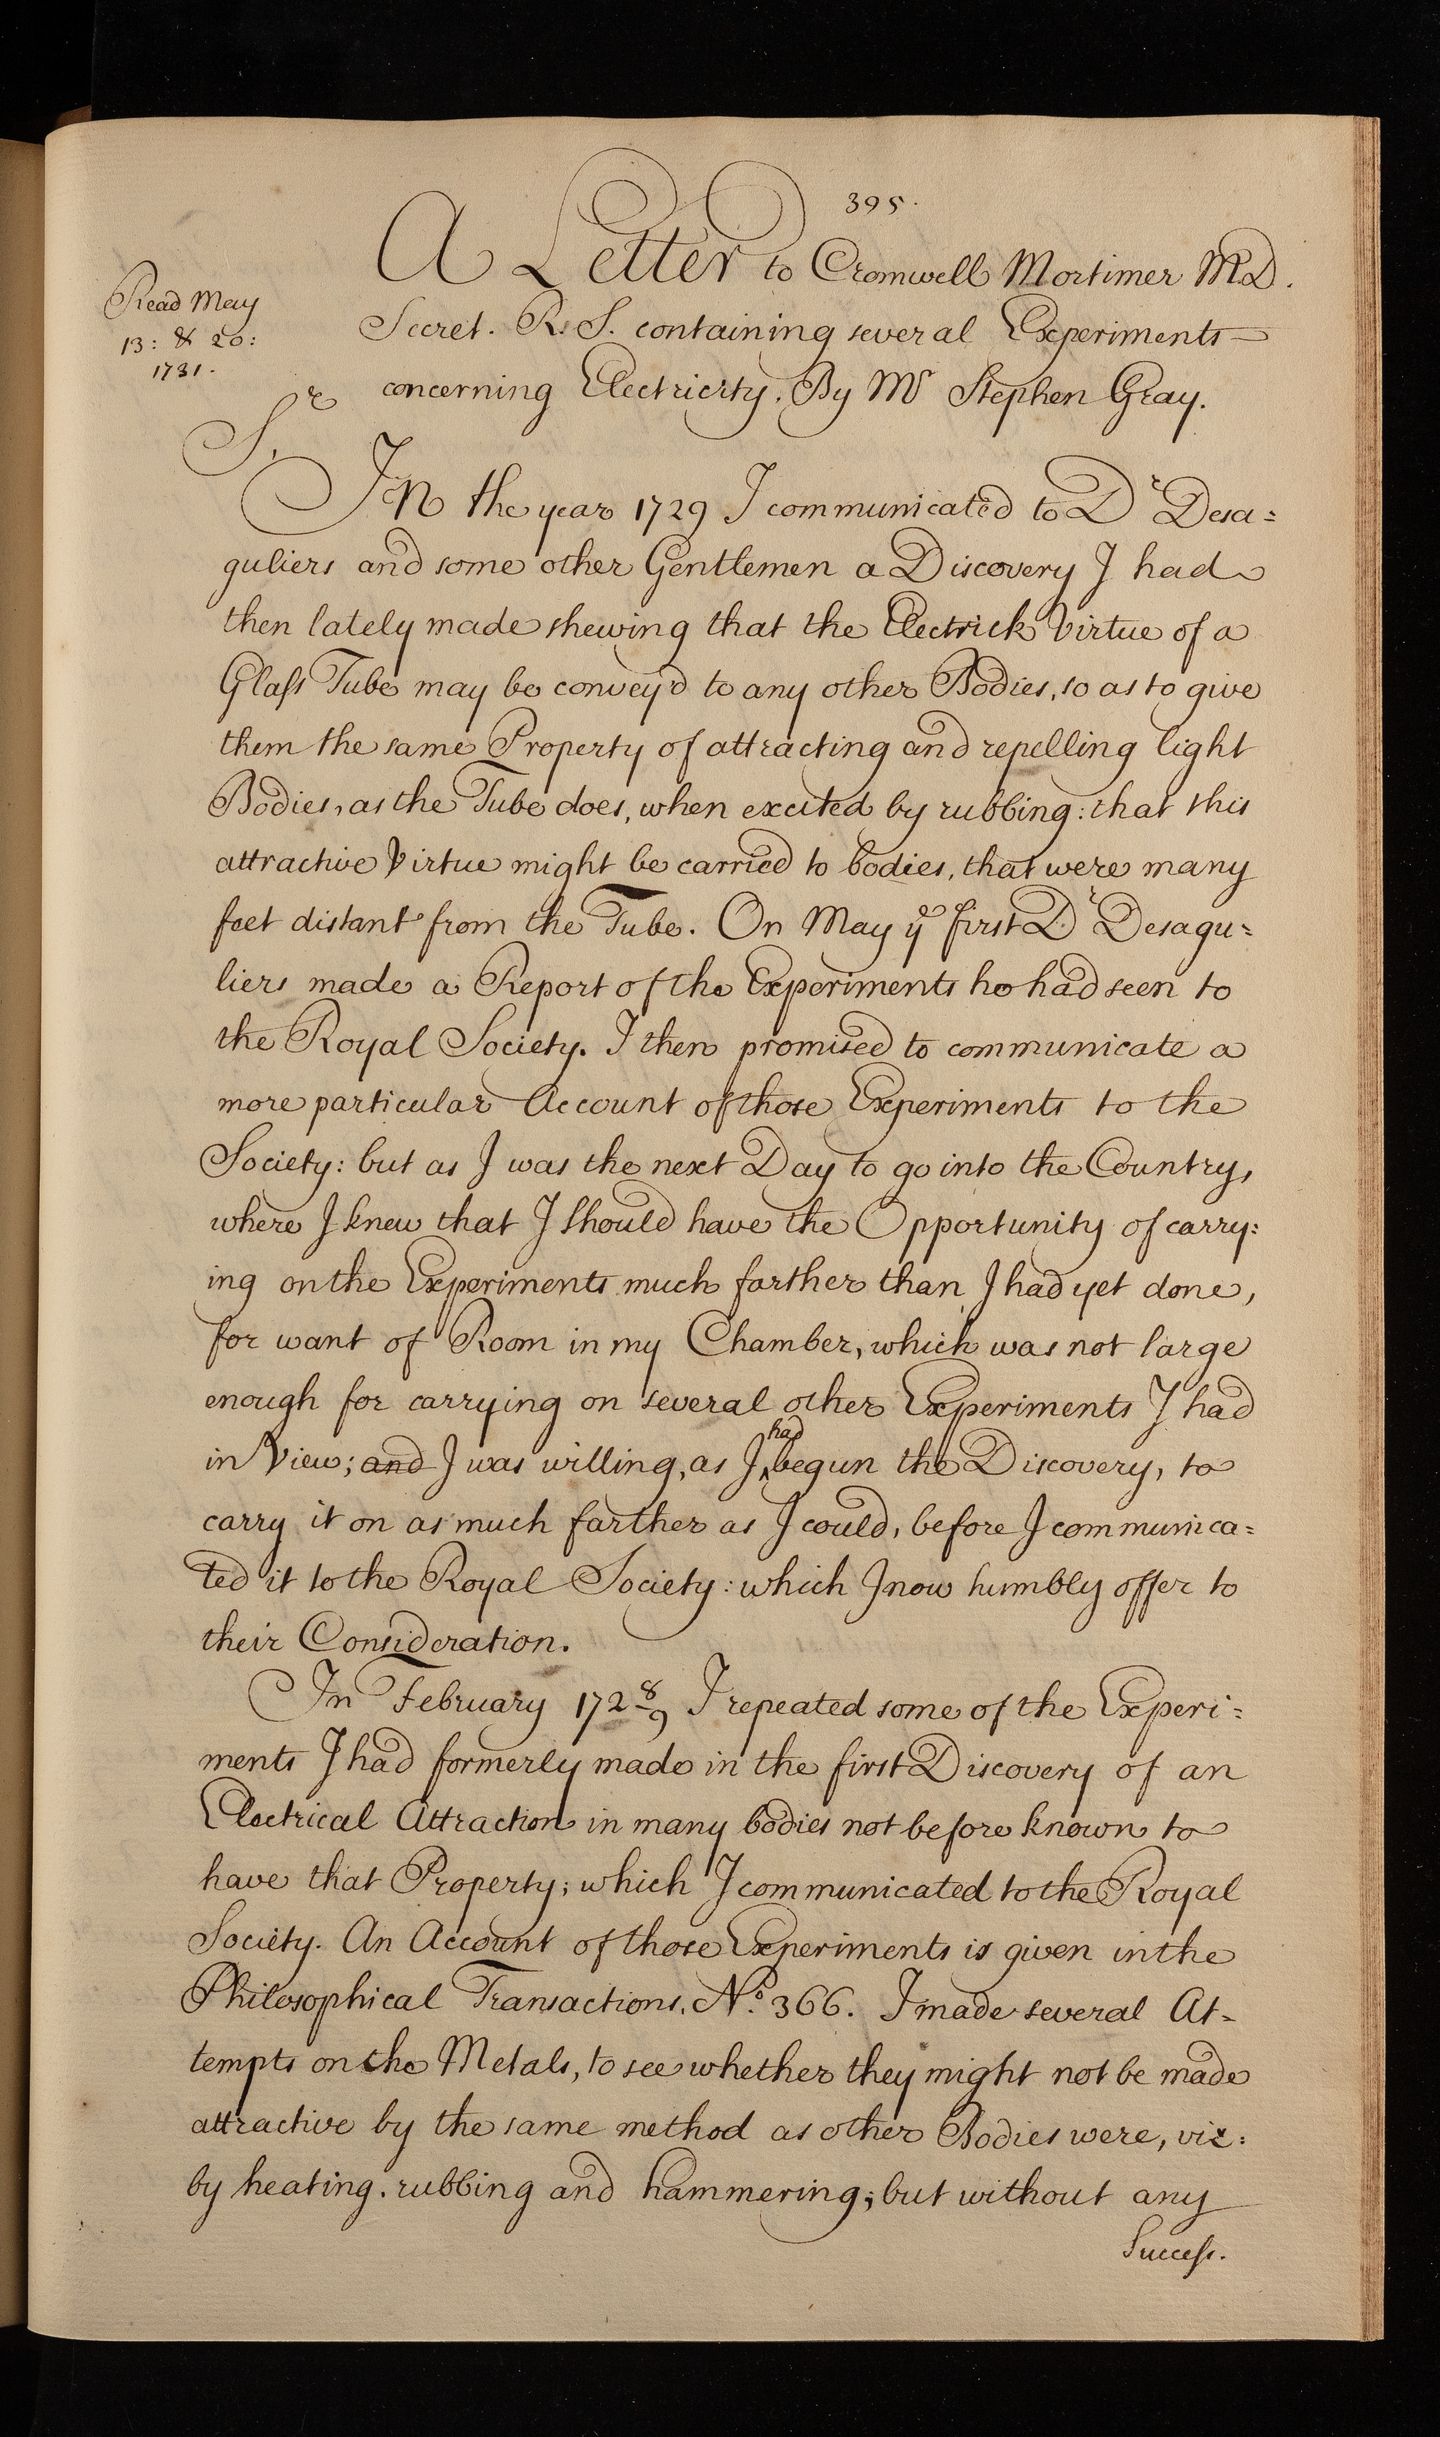 395.
A Letter to Cromwell Mortimer M.D.
Secret. R. S. containing several Experiments
concerning Electricity. By Mr Stephen Gray.
Read May
13: & 20:
1731.
Sr,
In the year 1729 I communicated to Dr Desa=
guliers and some other Gentlemen a Discovery I had
then lately made shewing that the Electrick Virtue of a
Glaſs Tube may be convey'd to any other Bodies, so as to give
them the same Property of attracting and repelling light
Bodies, as the Tube does, when excited by rubbing: that this
attractive Virtue might be carried to bodies, that were many
feet distant from the Tube. On May ye first Dr Desagu=
liers made a Report of the Experiments he had seen to
the Royal Society. I then promised to communicate a
more particular Account of those Experiments to the
Society: but as I was the next Day to go into the Country,
where I knew that I should have the Opportunity of carry:
ing on the Experiments much farther than I had yet done,
for want of Room in my Chamber, which was not large
enough for carrying on several other Experiments I had
in View; and I was willing, as I had begun the Discovery, to
carry it on as much farther as I could, before I communica=
ted it to the Royal Society: which I now humbly offer to
their Consideration.
In February 172 8/9 I repeated some of the Experi=
ments I had formerly made in the first Discovery of an
Electrical Attraction in many bodies not before known to
have that Property; which I communicated to the Royal
Society. An Account of those Experiments is given in the
Philosophical Transactions, No. 366. I made several At=
tempts on the Metals, to see whether they might not be made
attractive by the same method as other Bodies were, viz:
by heating. rubbing and hammering; but without any
Succeſs.